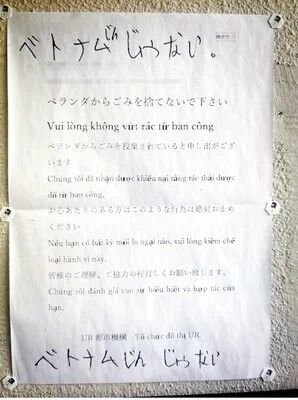 ベトナムじんじゃない。
ベランダからごみを捨てないで下さい
Vui lòng không vứt rác từ ban công
ベランダからごみを投棄されていると申し出がござ
います
Chúng tôi đã nhận được khiếu nại rằng rác thải được
đổ từ ban công,
お心あたりのある方はこのような行為は絶対お止め
ください
Nếu bạn có bất kỳ mối lo ngại nào, vui lòng kiềm chế
loại hành vi này.
皆様のご理解、ご協力の程宜しくお願い致します。
Chúng tôi đánh giá cao sự hiểu biết và hợp tác của
bạn.
UR 都市機構 Tổ chức đô thị UR
ベトナムじん じゃない